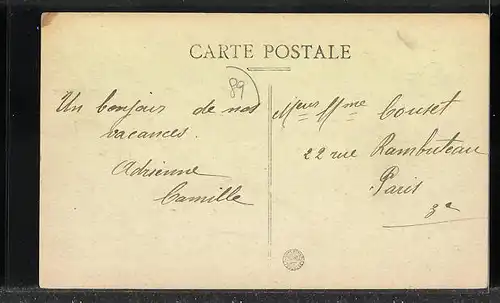 CARTE POSTALE
89
Un bonjour de nos
vacances.
Adrienne
Camille
Meur Mme Couset
22 rue Rambuteau
Paris
3e